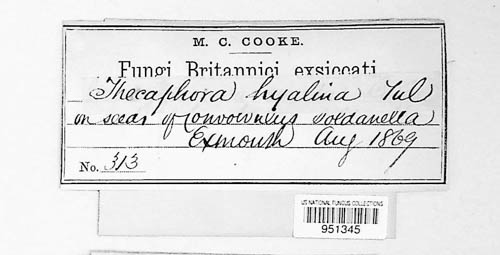 M. C. COOKE.
Fungi Britannici exsiccati
Thecaphora hyalina Tul
on seeds of Convolvulus soldanella
Exmouth Aug 1869
No. 313
US NATIONAL FUNGUS COLLECTIONS
951345